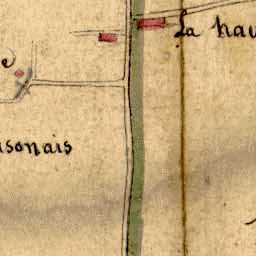 La hau
e
sonais